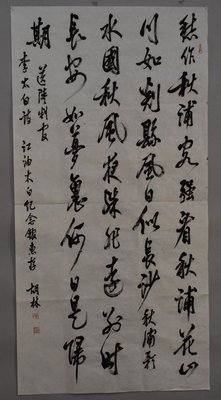 愁作秋浦客强看秋浦花山
川如剡縣風日似長沙 秋浦歌
水國秋風夜殊非遠別時
長安如夢裏何日是歸
期 送陸判官
李太白詩 江油太白纪念館惠存 胡林